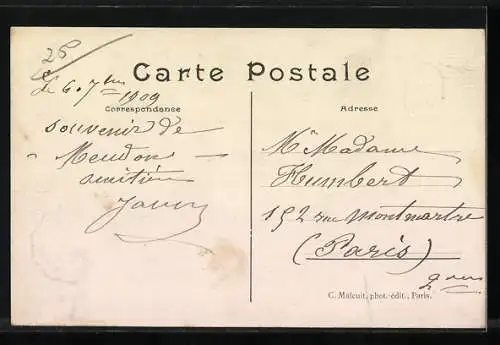 25
le 6.7bre
1909
Carte Postale
Correspondance
Adresse
souvenir de
- Meudon -
amitiés
Mr Madame
Humbert
152 rue Montmartre
(Paris)
C. Malcuit, phot.-édit., Paris.